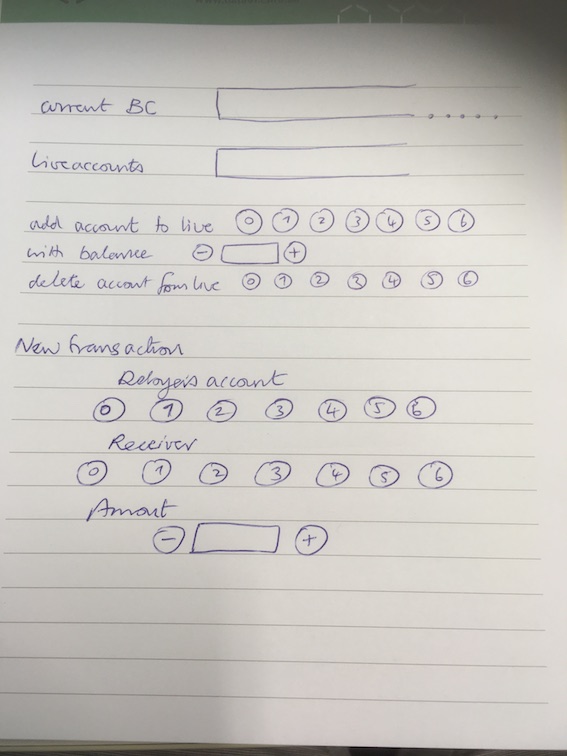 current BC
.....
Live accounts
add account to live 0 1 2 3 4 5 6
with balance - +
delete account from live 0 1 2 3 4 5 6
New transaction
account
0 1 2 3 4 5 6
Receiver
0 1 2 3 4 5 6
Amout
- +